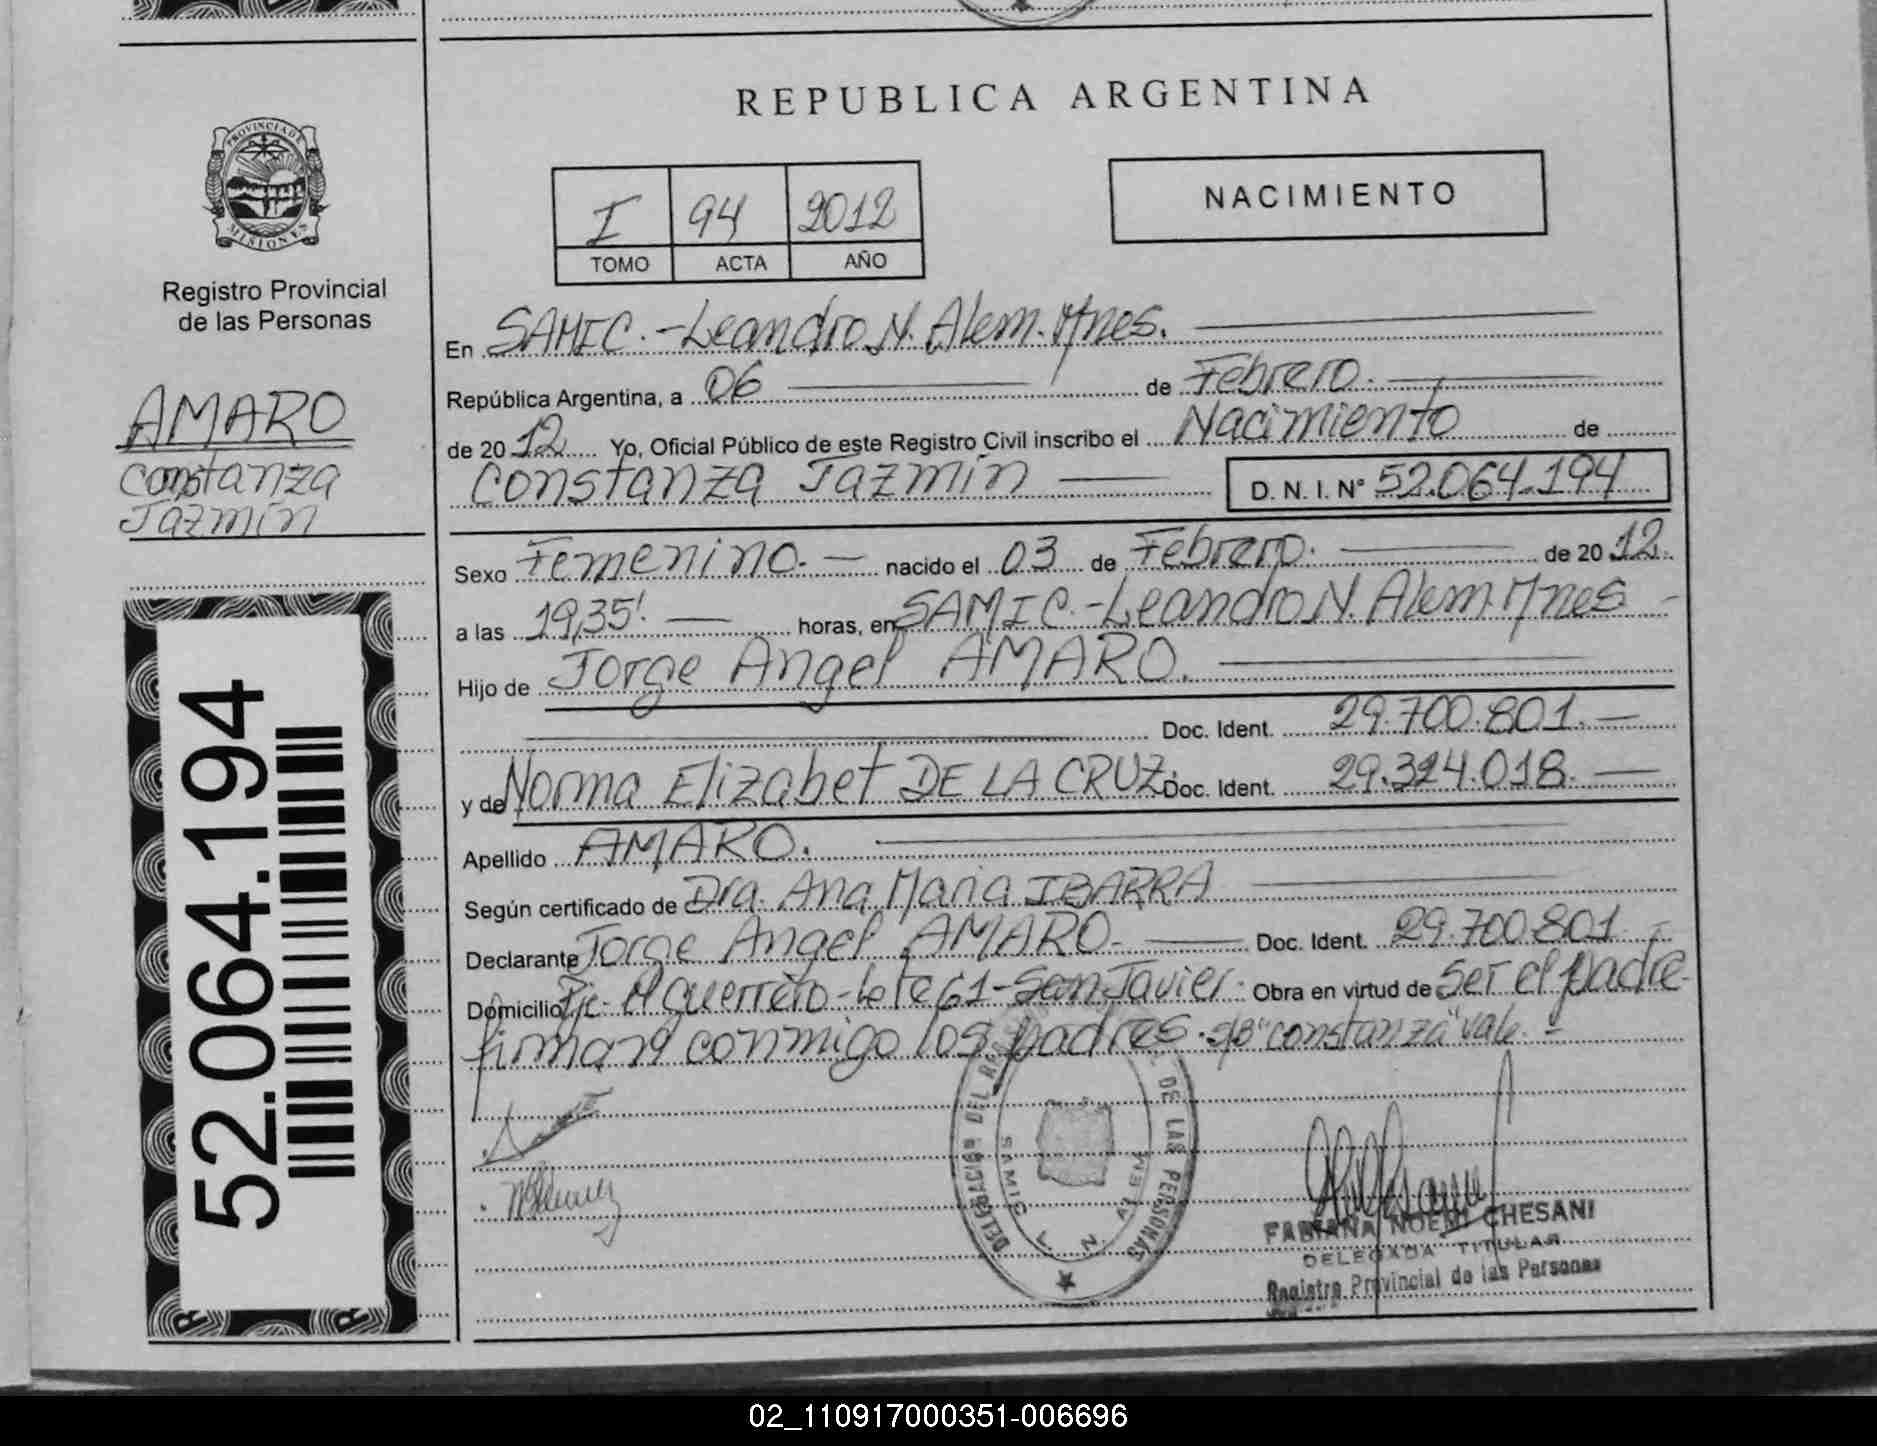 REPUBLICA ARGENTINA
PROVINCIA DE MISIONES
Registro Provincial
de las Personas
AMARO
Constanza
Jazmín
52.064.194
I 94 2012
TOMO ACTA AÑO
NACIMIENTO
En SAMIC.-Leandro N. Alem. Mnes.
República Argentina, a 06 de Febrero.
de 20 12 Yo, Oficial Público de este Registro Civil inscribo el Nacimiento de
Constanza Jazmín D. N. I. N° 52.064.194
Sexo Femenino.- nacido el 03 de Febrero. de 20 12.
a las 19,35'. horas, en SAMIC.-Leandro N. Alem. Mnes.-
Hijo de Jorge Angel AMARO.
Doc. Ident. 29.700.801.-
y de Norma Elizabet DE LA CRUZ. Doc. Ident. 29.324.018.-
Apellido AMARO.
Según certificado de Dra. Ana Maria IBARRA
Declarante Jorge Angel AMARO.- Doc. Ident. 29.700.801.-
Domicilio Pje. Guerrero-Lote 61-San Javier. Obra en virtud de Ser el padre
firman conmigo los padres. "Constanza" vale.-
DELEGACION DEL DE LAS PERSONAS
SAMIC L. N. ALEM
FABIANA NOEMI CHESANI
DELEGADA TITULAR
Registro Provincial de las Personas
02_110917000351-006696